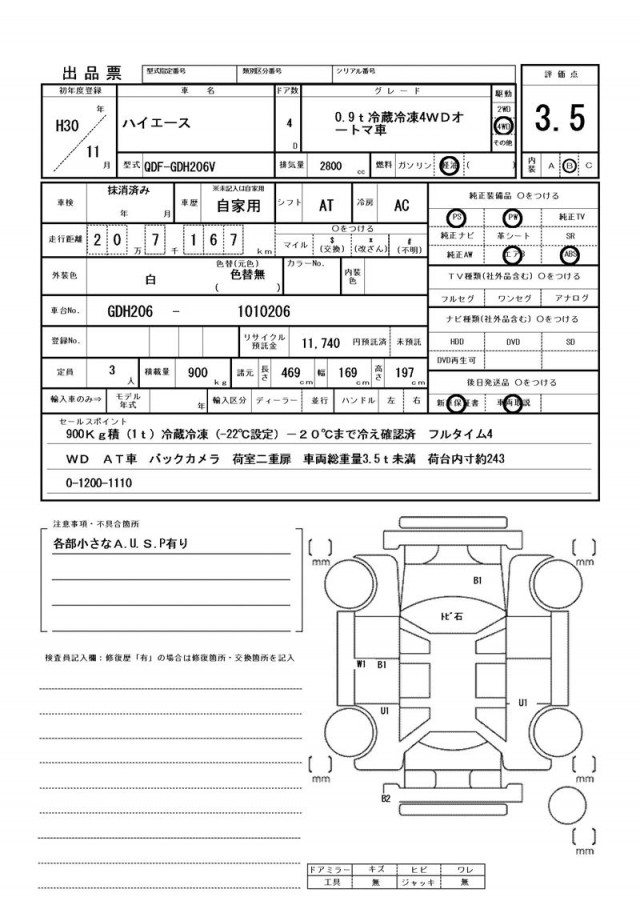 出品票 型式指定番号 類別区分番号 シリアル番号 評価点
初年度登録 車名 ドア数 グレード 駆動
H30 年 ハイエース 4 D 0.9t冷蔵冷凍4WDオ 2WD 3.5
ートマ車 4WD
11 月 その他
型式 QDF-GDH206V 排気量 2800 cc 燃料 ガソリン 軽油 ( ) 内装 A B C
車検 抹消済み 年 月 車歴 ※未記入は自家用 自家用 シフト AT 冷房 AC 純正装備品 ○をつける
PS PW 純正TV
走行距離 20万 7千 167 km ○をつける マイル $(交換) *(改ざん) #(不明) 純正ナビ 革シート SR
純正AW エアB ABS
外装色 白 色替(元色) 色替無 ( ) カラーNo. 内装色 TV種類(社外品含む) ○をつける
フルセグ ワンセグ アナログ
車台No. GDH206 - 1010206 ナビ種類(社外品含む) ○をつける
登録No. リサイクル預託金 11,740 円預託済 未預託 HDD DVD SD
DVD再生可
定員 3 人 積載量 900 kg 諸元 長さ 469 cm 幅 169 cm 高さ 197 cm 後日発送品 ○をつける
輸入車のみ⇒ モデル年式 年 輸入区分 ディーラー 並行 ハンドル 左 右 新車保証書 車両取説
セールスポイント
900Kg積(1t)冷蔵冷凍(-22℃設定)-20℃まで冷え確認済 フルタイム4
WD AT車 バックカメラ 荷室二重扉 車両総重量3.5t未満 荷台内寸約243
0-1200-1110
注意事項・不具合箇所
各部小さなA.U.S.P有り
検査員記入欄:修復歴「有」の場合は修復箇所・交換箇所を記入
[ ] mm
[ ] mm
B1
トビ石
W1 B1
U1
U1
[ ] mm
[ ] mm
B2
[ ] mm
ドアミラー キズ ヒビ ワレ
工具 無 ジャッキ 無